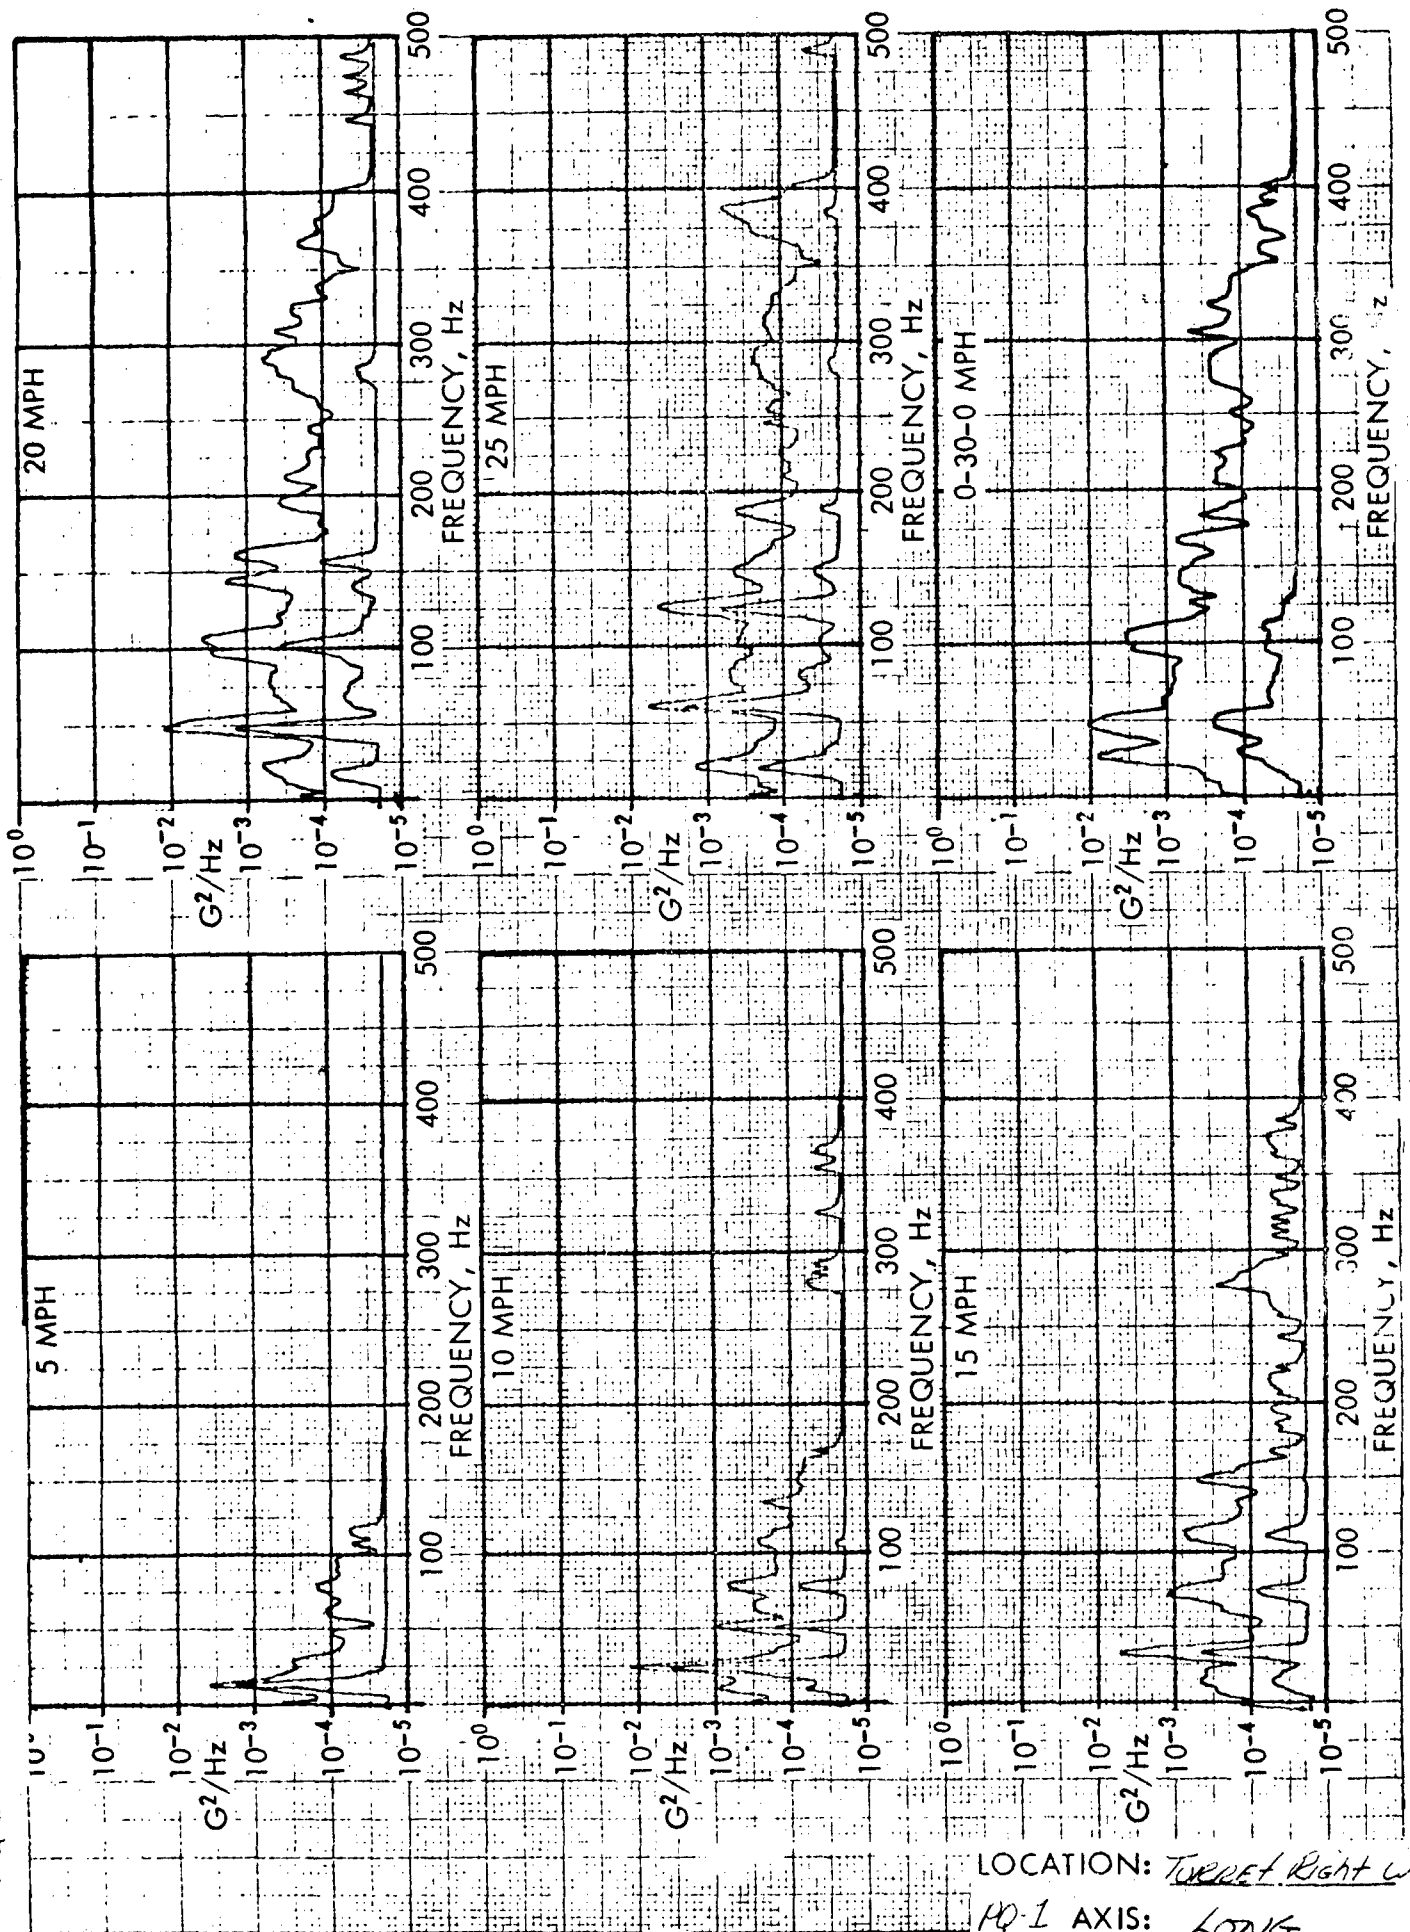 5 MPH
10⁰
10⁻¹
10⁻²
G²/Hz
10⁻³
10⁻⁴
10⁻⁵
100
200
300
400
500
FREQUENCY, Hz
10 MPH
10⁰
10⁻¹
10⁻²
G²/Hz
10⁻³
10⁻⁴
10⁻⁵
100
200
300
400
500
FREQUENCY, Hz
15 MPH
10⁰
10⁻¹
10⁻²
G²/Hz
10⁻³
10⁻⁴
10⁻⁵
100
200
300
400
500
FREQUENCY, Hz
20 MPH
10⁰
10⁻¹
10⁻²
G²/Hz
10⁻³
10⁻⁴
10⁻⁵
100
200
300
400
500
FREQUENCY, Hz
25 MPH
10⁰
10⁻¹
10⁻²
G²/Hz
10⁻³
10⁻⁴
10⁻⁵
100
200
300
400
500
FREQUENCY, Hz
0-30-0 MPH
10⁰
10⁻¹
10⁻²
G²/Hz
10⁻³
10⁻⁴
10⁻⁵
100
200
300
400
500
FREQUENCY, z
LOCATION: TURRET Right
PQ-1 AXIS: LONG